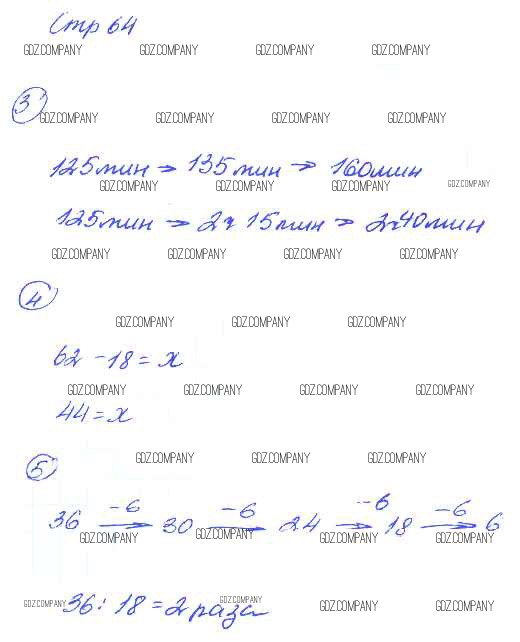 Стр 64
GDZ.COMPANY GDZ.COMPANY GDZ.COMPANY GDZ.COMPANY
3
GDZ.COMPANY GDZ.COMPANY GDZ.COMPANY GDZ.COMPANY
125мин → 135мин → 160мин
GDZ.COMPANY GDZ.COMPANY GDZ.COMPANY GDZ.COMPANY
125мин → 2ч 15мин → 2ч40мин
GDZ.COMPANY GDZ.COMPANY GDZ.COMPANY GDZ.COMPANY
4
GDZ.COMPANY GDZ.COMPANY GDZ.COMPANY
62 - 18 = x
GDZ.COMPANY GDZ.COMPANY GDZ.COMPANY GDZ.COMPANY
44 = x
5
GDZ.COMPANY GDZ.COMPANY GDZ.COMPANY
-6 -6 -6 -6
36 → 30 → 24 → 18 → 6
GDZ.COMPANY GDZ.COMPANY GDZ.COMPANY GDZ.COMPANY
36 : 18 = 2 раза
GDZ.COMPANY GDZ.COMPANY GDZ.COMPANY GDZ.COMPANY